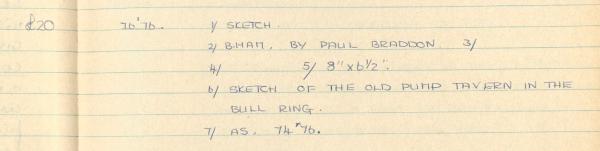 £20 76'76. 1/ SKETCH.
2/ B.HAM. BY PAUL BRADDON. 3/
4/ 5/ 8" x 6 1/2".
6/ SKETCH OF THE OLD PUMP TAVERN IN THE
BULL RING.
7/ AS. 74'76.